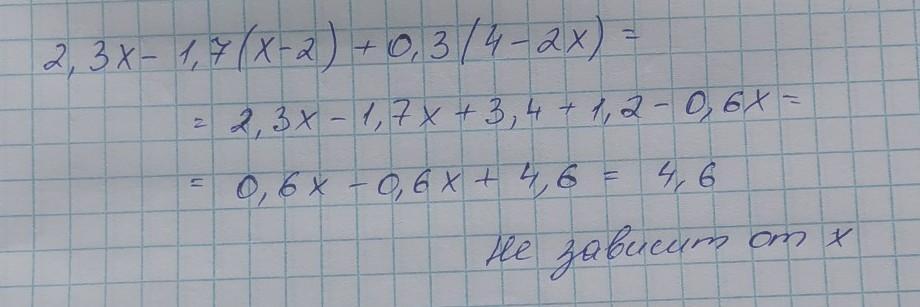 2,3x - 1,7(x-2) + 0,3(4-2x) =
= 2,3x - 1,7x + 3,4 + 1,2 - 0,6x =
= 0,6x - 0,6x + 4,6 = 4,6
Не зависит от x